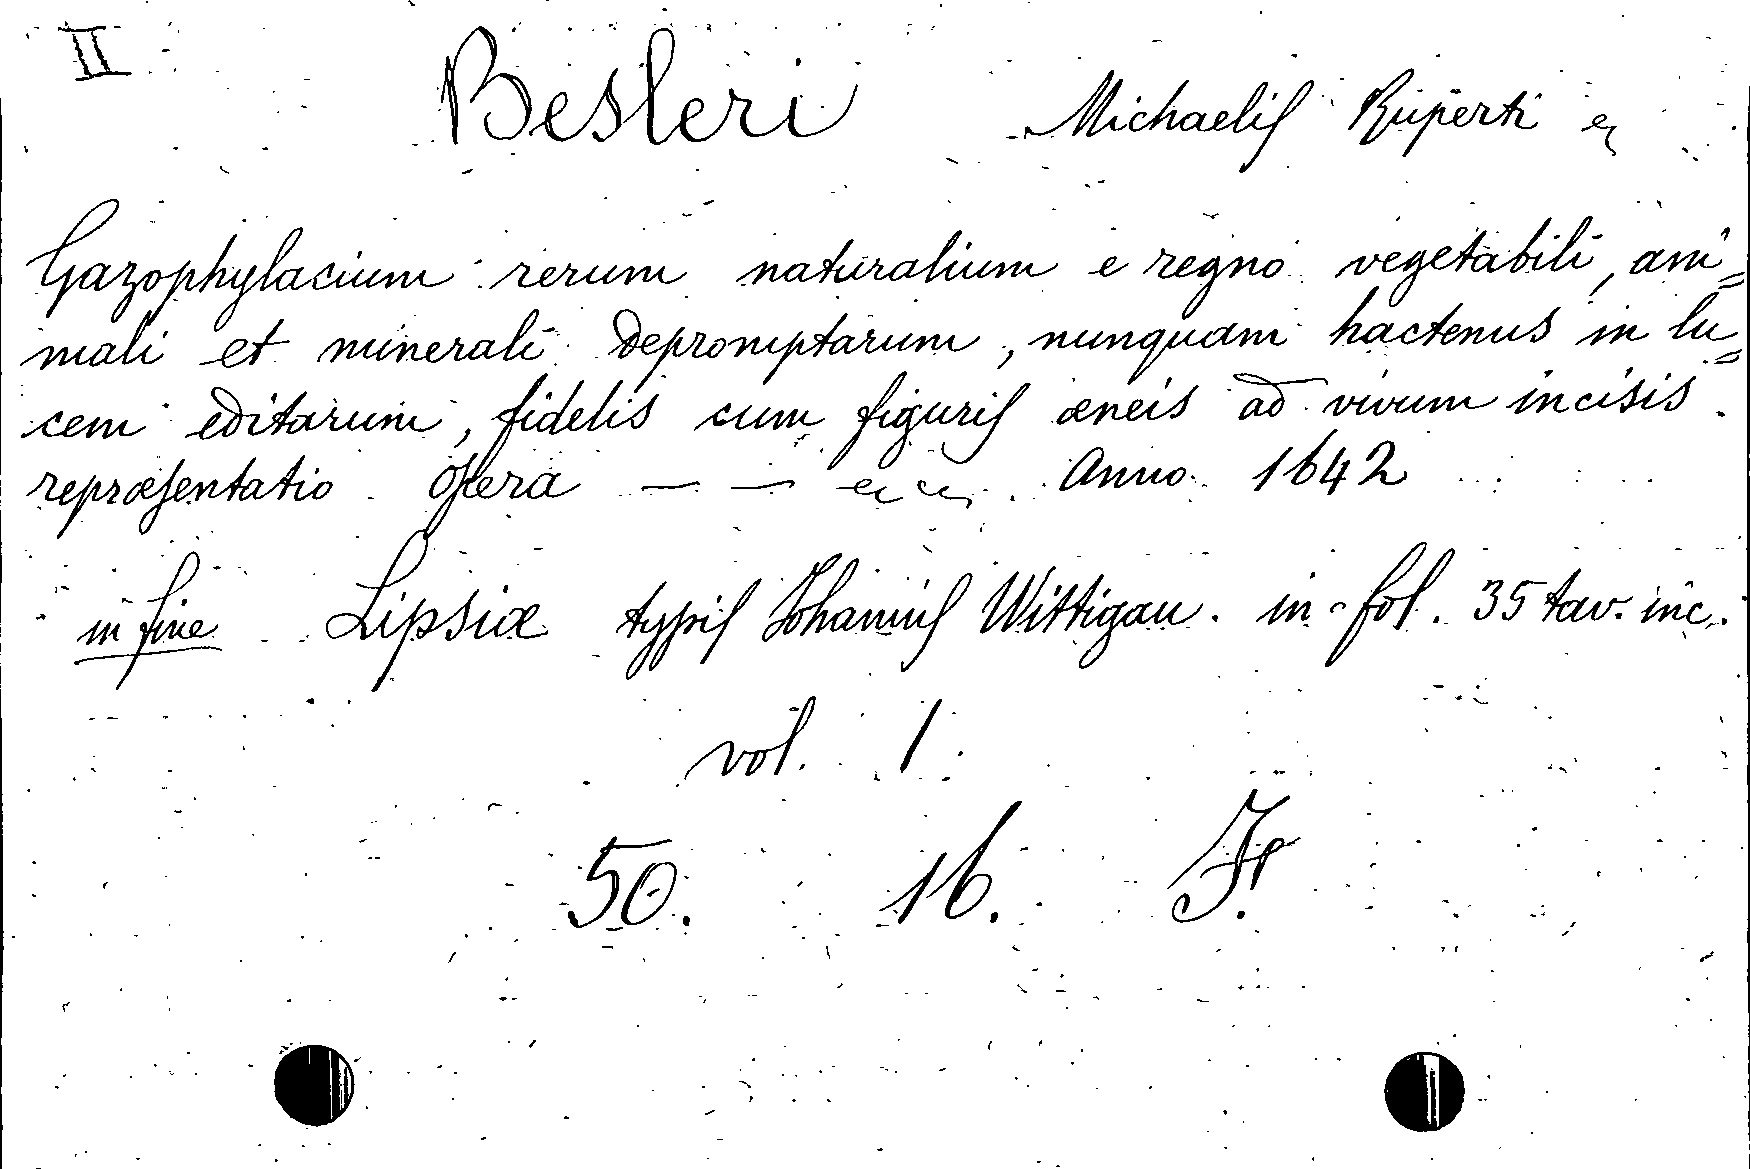 II
Besleri Michaelis Ruperti &
Gazophylacium rerum naturalium e regno vegetabili, ani=
mali et minerali depromptarum, nunquam hactenus in lu=
cem editarum, fidelis cum figuris æneis ad vivum incisis
repræsentatio Opera — — Anno 1642
in fine Lipsiæ typis Johannis Wittigau. in-fol. 35 tav. inc.
vol. 1.
50. 16.